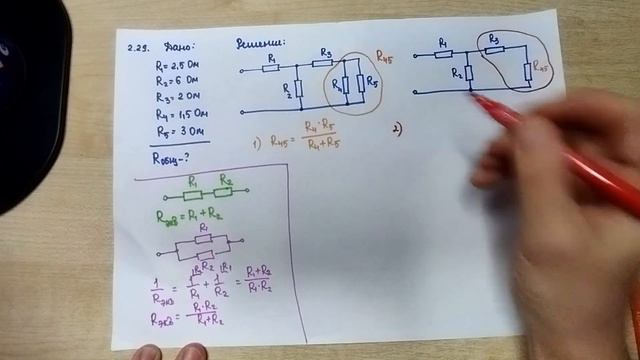 2.29. Дано:
R₁ = 2,5 Ом
R₂ = 6 Ом
R₃ = 2 Ом
R₄ = 1,5 Ом
R₅ = 3 Ом
Rобщ - ?
Решение:
R₁ R₃ R₄₅
R₂ R₄ R₅
1) R₄₅ = R₄·R₅ / R₄+R₅
R₁ R₃
R₂ R₄₅
2)
R₁ R₂
Rэкв = R₁ + R₂
R₁
R₂
1/Rэкв = 1/R₁ + 1/R₂ = R₁+R₂ / R₁·R₂
Rэкв = R₁·R₂ / R₁+R₂